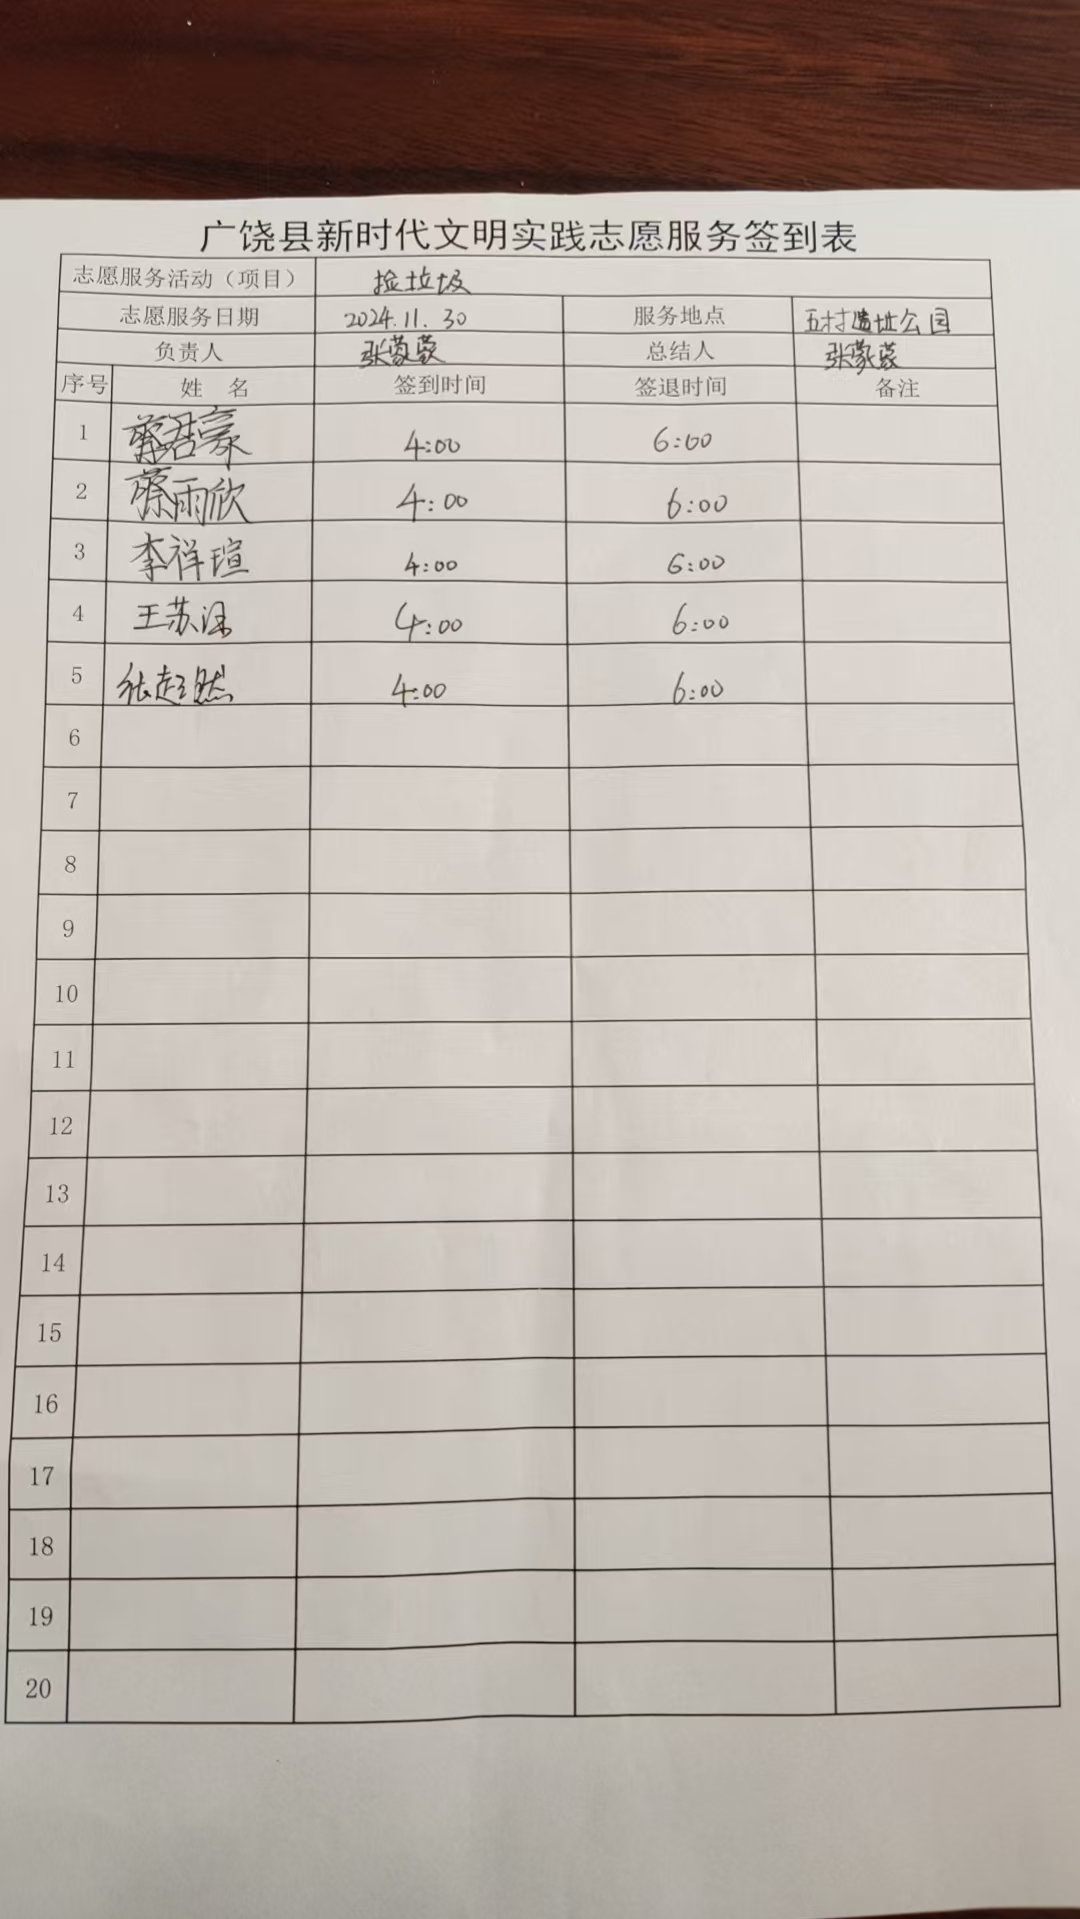 广饶县新时代文明实践志愿服务签到表
志愿服务活动（项目） 捡垃圾
志愿服务日期 2024.11.30 服务地点 五村遗址公园
负责人 张蒙蒙 总结人 张蒙蒙
序号 姓 名 签到时间 签退时间 备注
1 君豪 4:00 6:00
2 蔡雨欣 4:00 6:00
3 李祥瑄 4:00 6:00
4 王苏 4:00 6:00
5 张超然 4:00 6:00
6
7
8
9
10
11
12
13
14
15
16
17
18
19
20